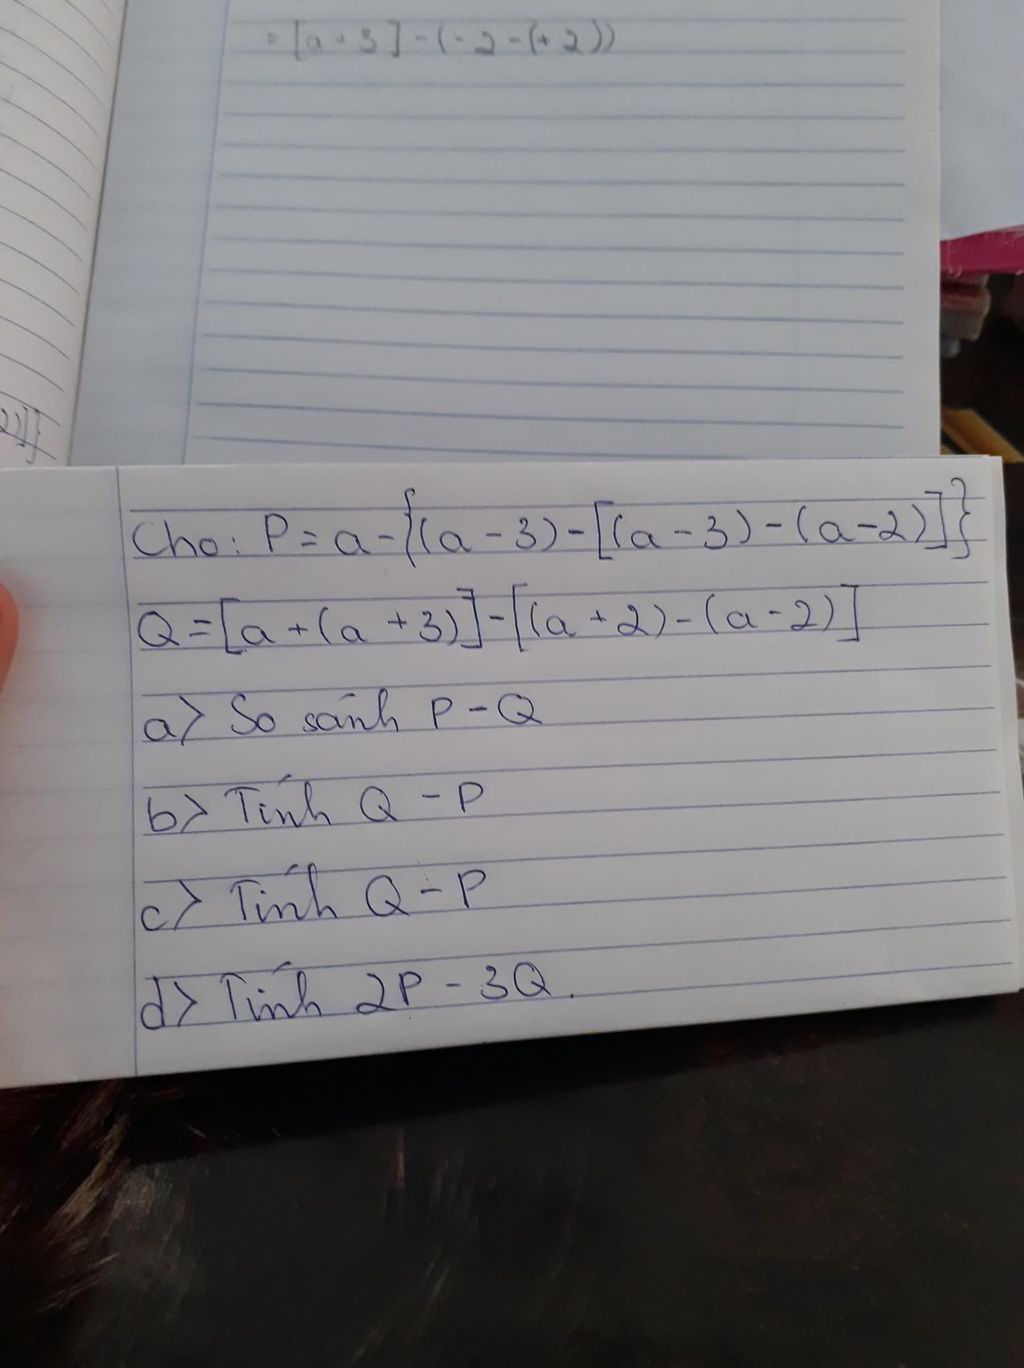 = [a + 3] - (-2 - (+2))
2)]}
Cho: P = a - {(a - 3) - [(a - 3) - (a - 2)]}
Q = [a + (a + 3)] - [(a + 2) - (a - 2)]
a> So sánh P - Q
b> Tính Q - P
c> Tính Q - P
d> Tính 2P - 3Q.